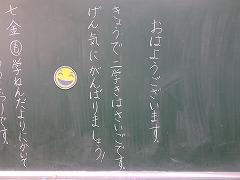 おはようございます。
きょうで二学きはさいごです。
げん気にがんばりましょう!
七金も学ねんだよりにかいて